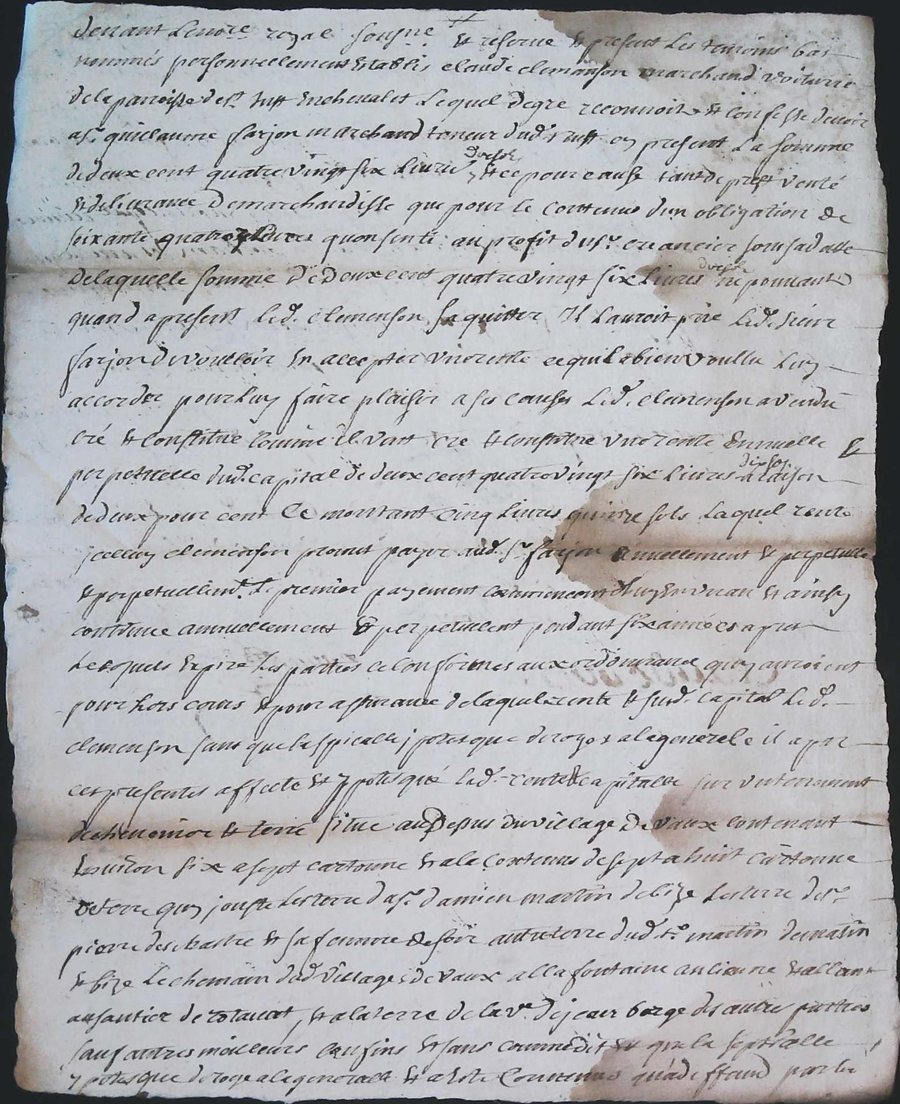 devant Le no.re royal sousne. & reserve & present Les temoins bas
nommés personnellement etablis claude clemenson marchand voiturie
de la parroisse de st. Just en chevalet Lequel de gre reconnoit & confesse devoir
a sr. guileaume farjon marchand taneur dud. st Just cy present La somme
de deux cent quatre vingt six Livres dixsols & ce pour cause tant de prest vente
& delivrance de marchandisse que pour le contenu dun obligation de
soixante quatre Livres quonsenti au profit du sr. creancier sousa datte
de laquelle somme de deux cent quatre vingt six Livres dixsols ne pouvant
quand a present Led. clemenson saquitter Il Lauroit prie Led. sieur
farjon de voulloir en accepter une rente ce quil a bien voullu Luy
accorder pour Luy faire plaisir a ses causes Led. clemenson a vendu
cré & constitue comme il vant cre & constitue une rente annuelle &
perpetuelle dud. capital de deux cent quatre vingt six Livres dixsols a raison
de deux pour cent Ce montant cinq Livres quinze sols Laquel rente
jcelluy clemenson promet payer aud. sr. farjon annuellement & perpetuelle
& perpetuellemt. Le premier payement commencent dhuy en un an & ainsy
continue annuellement & perpetuelent pendant six annees apres
Lesquels expire Les parties ce conformes aux ordonnance quy auroient
pour hors cours & pour assurance de laquel rente & susd. capital Led.
clemenson sans que la spicalle jpotesque deroges a la generalle il a par
ces presentes affecte & ypotesqué Led. rente & capitalle sur un tennement
de cheneviere & terre situe au dessus du village de vaux contenant
Environ six a sept cartonne & a la Contenus de sept a huit cartonne
de terre quy jouste Les terre da sr. damien martin de bize Les terre de sr.
pierre desebastre & sa femme de soir autre terre dud. sr. martin de matin
& bize Le chemain dud. village de vaux alla fontaine ancienne & allant
au santier de & a la terre de la ve. de jean barge des autres parties
sauf autres milleurs confins & sans comme dit & que la septialle
ypotesque deroge a la generalle & a la de Contenus